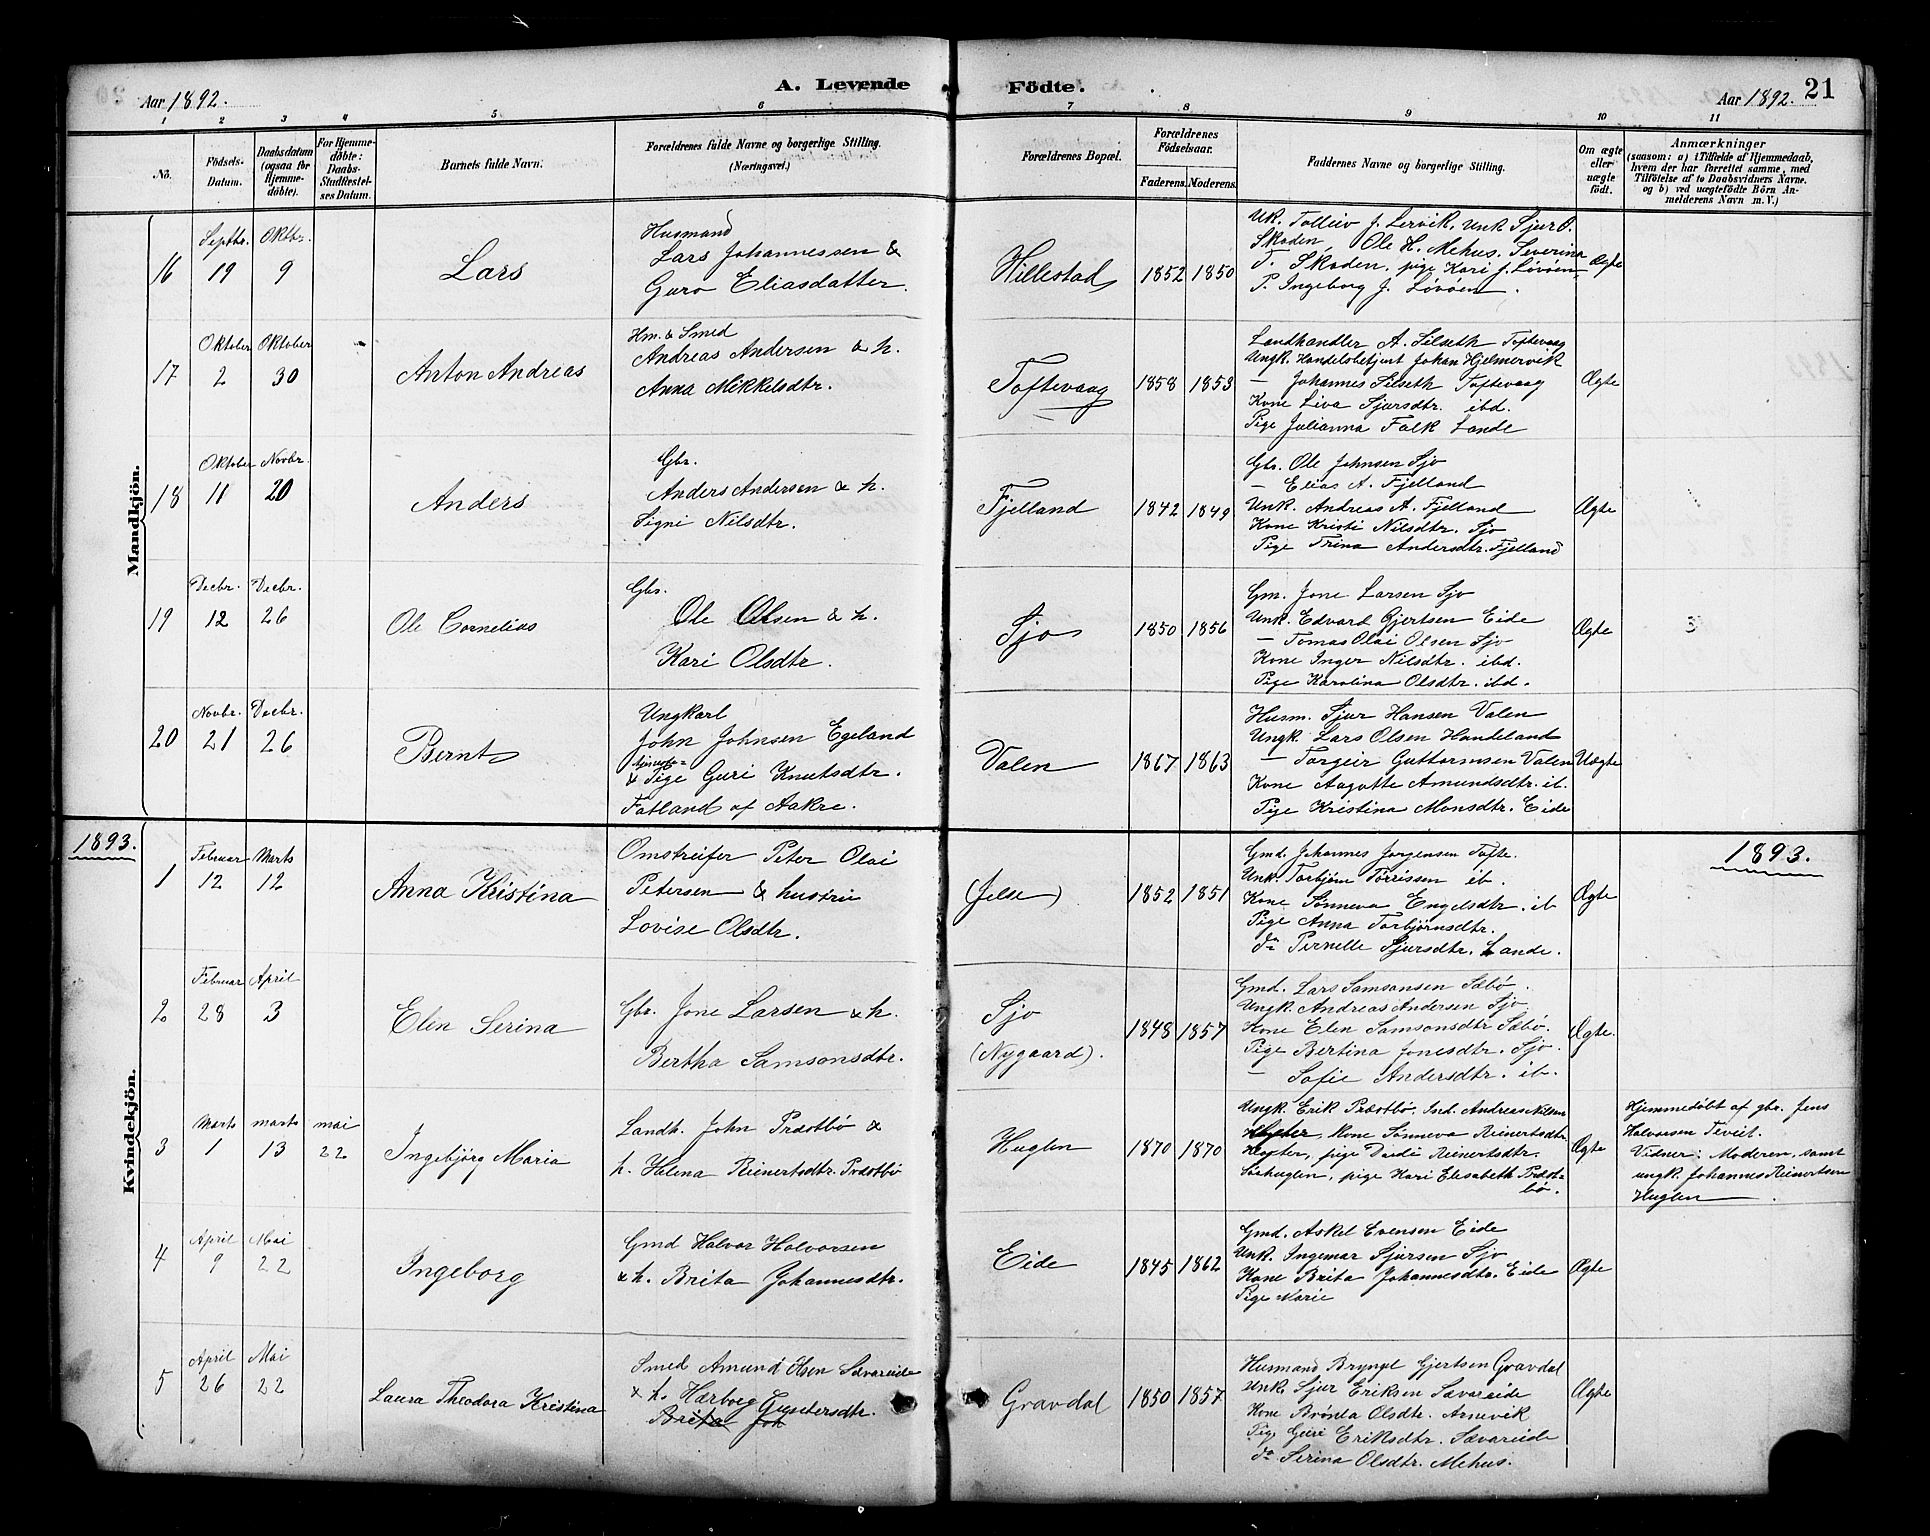 Aar 1892.
A. Levende
Födte.
Aar 1892. 21
1 2 3 4 5 6 7 8 9 10 11
No.
Födsels-Datum.
Daabsdatum (ogsaa for Hjemmedöbte).
For Hjemmedöbte: Daabs-Stadfæstelses Datum.
Barnets fulde Navn.
Forældrenes fulde Navne og borgerlige Stilling. (Næringsvei.)
Forældrenes Bopæl.
Forældrenes Födselsaar.
Faderens. Moderens.
Faddernes Navne og borgerlige Stilling.
Om ægte eller uægte født.
Anmærkninger
(saasom: a) i Tilfælde af Hjemmedaab, hvem der har forrettet samme, med Tilföielse af to Daabsvidners Navne, og b) ved uægtefödte Börn Anmelderens Navn m. V.)
Mandkjön.
16
Septbr. 19
Oktbr. 9
Lars
Husmand
Lars Johannessen &
Guro Eliasdatter.
Hillestad
1852 1850
Uk. Tolleiv J. Lervik, unk Sjur O.
Skoden, Ole H. Mehus, Severina
T. Skoden, pige Kari J. Lövöen
P. Ingeborg J. Lövöen.
Ægte
17
Oktober 2
Oktober 30
Anton Andreas
Hm. & Smed
Andreas Andersen & h.
Anna Mikkelsdtr.
Toftevaag
1858 1853
Landhandler A. Silseth Toftevaag
Ungk. Handelsbetjent Johan Hjelmervik
— Johannes Silseth Toftevaag
Kone Liva Sjursdtr. ibd.
Pige Julianna Falk Lande
Ægte
18
Oktober 11
Novbr. 20
Anders
Gbr.
Anders Andersen & h.
Signi Nilsdtr.
Fjelland
1842 1849
Gbr. Ole Johnsen Sjo
— Elias A. Fjelland
Unk. Andreas A. Fjelland
Kone Kristi Nilsdtr. Sjo
Pige Trina Andersdtr. Fjelland
Ægte
19
Decbr. 12
Decbr. 26
Ole Cornelius
Gbr.
Ole Olsen & h.
Kari Olsdtr.
Sjo
1850 1856
Gm. Jone Larsen Sjo
Unk. Edvard Gjertsen Eide
— Tomas Olai Olsen Sjo
Kone Inger Nilsdtr. ibd.
Pige Karolina Olsdtr. ibd.
Ægte
20
Novbr. 21
Decbr. 26
Bernt
Ungkarl
John Johnsen Egeland
& Pige Guri Knutsdtr.
Fatland af Aakre.
Valen
1867 1863
Husm. Sjur Hansen Valen
Ungk. Lars Olsen Handeland
— Torgeir Guttormsen Valen
Kone Aagotte Amundsdtr. ib.
Pige Kristina Monsdtr. Eide
Uægte
1893.
1893.
Kvindekjön.
1
Februar 12
Marts 12
Anna Kristina
Omstreifer Peter Olai
Petersen & hustru
Lovise Olsdtr.
(Jelse)
1852 1851
Gmd. Johannes Jorgensen Tofte.
Unk. Torbjörn Torrissen ib.
Kone Sönneva Engelsdtr. ib
Pige Anna Torbjörnsdtr.
do Pernelle Sjursdtr. Lande.
Ægte
2
Februar 28
April 3
Elen Serina
Gbr. Jone Larsen & h.
Bertha Samsonsdtr.
Sjo
(Nygaard).
1848 1857
Gmd. Lars Samsonsen Sæbö.
Ungk. Andreas Andersen Sjo
Kone Elen Samsonsdtr Sæbö.
Pige Bertina Jonesdtr. Sjo.
— Sofie Andersdtr. ib.
Ægte.
3
Marts 1
marts 13
mai 22
Ingebjörg Maria
Landh. John Præstbö &
h. Helena Reinertsdtr. Præstbö
Huglen
1870 1870
Ungk. Erik Præstbö, Ind. Andreas Nilsen
Klopter, Kone Sönneva Reinertsdtr.
Klopter, pige Dordi Reinertsdtr.
Sörhuglen, pige Kari Elisabeth Præstbö.
Ægte
Hjemmedöbt af gbr. Jens
Halvorsen Teveit.
Vidner: Moderen, samt
ungk. Johannes Reinertsen
Huglen.
4
April 9
Mai 22
Ingeborg
Gmd Halvor Halvorsen
& h. Brita Johannesdtr.
Eide
1845 1862
Gmd. Askel Evensen Eide
Unk. Ingemar Sjursen Sjo
Kone Brita Johannesdtr. Eide
Pige Marie
Ægte
5
April 26
Mai 22
Laura Theodora Kristina
Smed Amund Olsen Sævareide
& h. Hærborg Gundersdtr.
Brita Joh
Gravdal
1850 1857
Husmand Bryngel Gjertsen Gravdal
Unk. Sjur Eriksen Sævareide
Kone Brönla Olsdtr. Arnevik
Pige Guri Eriksdtr. Sævareide
do Serina Olsdtr. Mehus.
Ægte